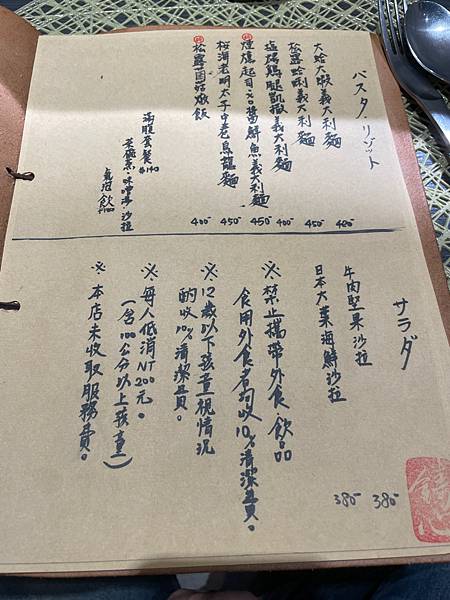 パスタ・リゾット
大蛤大蝦義大利麵 480-
松露蛤蜊義大利麵 450-
鷄腿凱撒義大利麵 400-
煙燻起司奶醬鮮魚義大利麵 450-
桜海老明太子中卷烏龍麵 450-
松露菌菇燉飯 400-
滿腹套餐 $140
茶碗蒸・味噌湯・沙拉
飲
サラダ
牛肉堅果沙拉 380-
日本大葉海鮮沙拉 380-
※禁止攜帶外食、飲品
食用外食者均收10%清潔費。
※12歲以下孩童視情況
酌收10%清潔費。
※每人低消NT200元。
(含100公分以上孩童)
※本店未收取服務費。